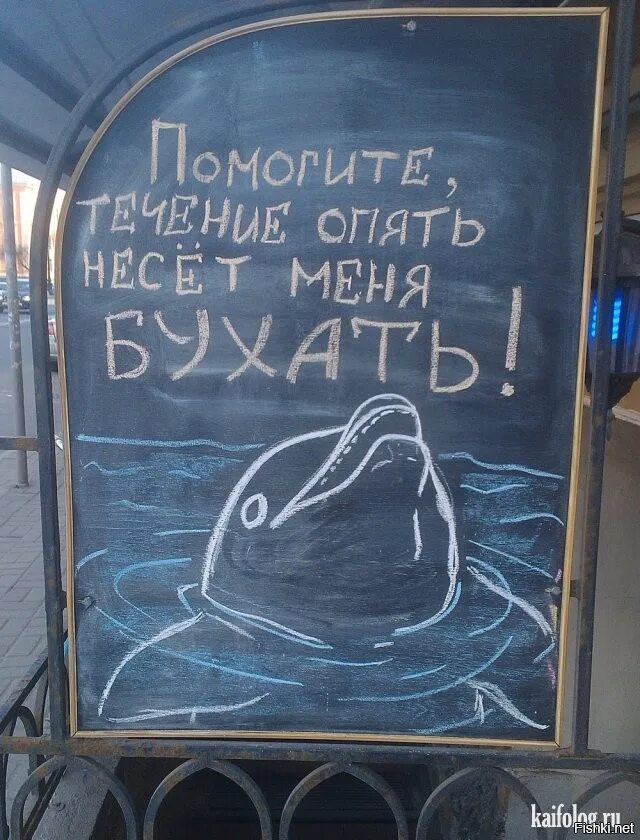 Помогите,
течение опять
несёт меня
БУХАТЬ!
kaifolog.ru
Fishki.net